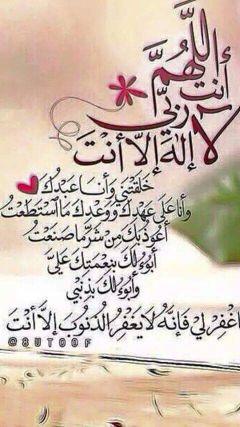 اللَّهُمَّ
أنتَ رَبِّي
لَا إِلَهَ إِلَّا أَنْتَ
خَلَقْتَنِي وَأَنَا عَبْدُكَ
وَأَنَا عَلَى عَهْدِكَ وَوَعْدِكَ مَا اسْتَطَعْتُ
أَعُوذُ بِكَ مِنْ شَرِّ مَا صَنَعْتُ
أَبُوءُ لَكَ بِنِعْمَتِكَ عَلَيَّ
وَأَبُوءُ لَكَ بِذَنْبِي
اغْفِرْ لِي فَإِنَّهُ لَا يَغْفِرُ الذُنُوبَ إِلَّا أَنْتَ
@8UT00F